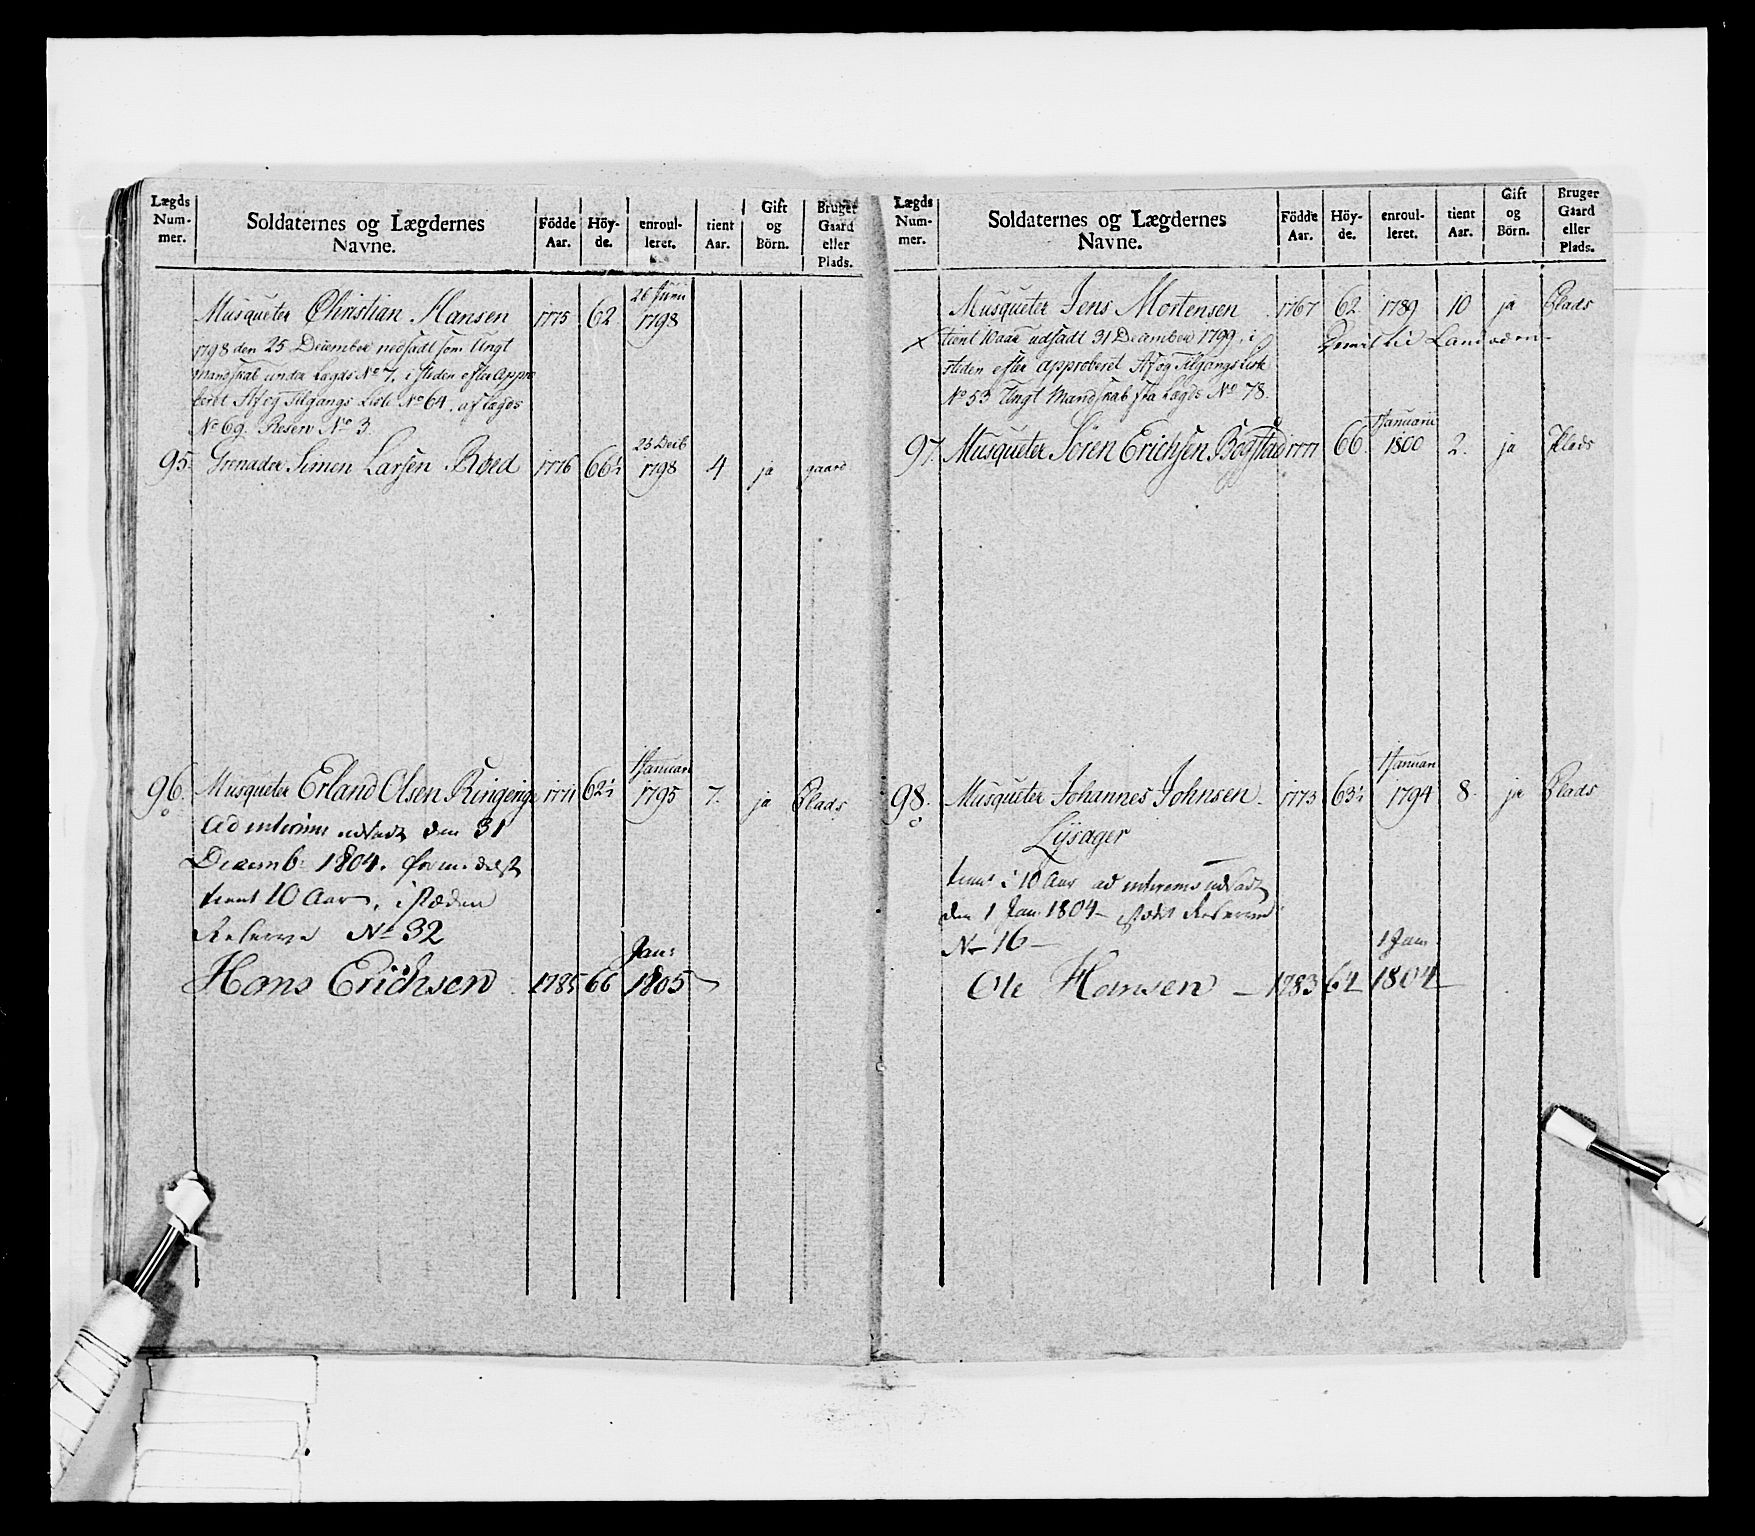 Lægds Num-mer. Soldaternes og Lægdernes Navne. Födde Aar. Höy-de. enroul-leret. tient Aar. Gift og Börn. Bruger Gaard eller Plads.
26 Junii
Musqueter Christian Hansen 1775 62 1798
1798 den 25 December nedsadt som Ungt
Mandskab under Lægds No 7. i steden efter Appro
beret Af og Tilgangs Liste No 64. af Lægds
No 69. Reserv No 3.
25 Decb
95. Grenader Simen Larsen Roed 1776 66½ 1798 4 ja gaard
1 Januari
96. Musqueter Erland Olsen Ringerige 1771 62½ 1795 7. ja Plads
Ad interim udsadt den 31
Decemb: 1804. formedelst
tient 10 Aar, i stæden
Reserve No 32
Jan:
Hans Erichsen 1785 66 1805
Lægds Num-mer. Soldaternes og Lægdernes Navne. Födde Aar. Höy-de. enroul-leret. tient Aar. Gift og Börn. Bruger Gaard eller Plads.
Musqueter Jens Mortensen 1767 62. 1789 10 ja Plads
x tient 10 aar udsadt 31 December 1799. i Landværn
steden efter approberet Af og Tilgangs Liste
No 53 Ungt Mandskab fra Lægds No 78.
1 Januarii
97. Musqueter Søren Erichsen Bogstad 1777 66. 1800 2. ja Plads
1 Januari
98. Musqueter Johannes Johnsen 1773 63½ 1794 8. ja Plads
Lysager
tient i 10 Aar ad interims udsadt
den 1 Jan: 1804 - Reserve
No 16 -
1 Jan
Ole Hansen - 1783 64 1804